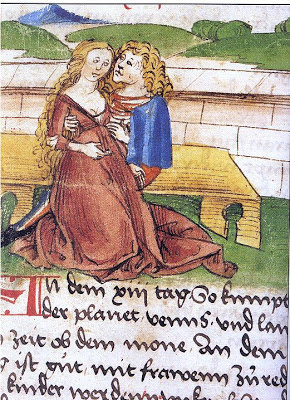 In dem xiii tag So kumpt
der planet venus, vnd lan
zeit ob dem mone. An dem
ist gůt mit frawenn zů red
kinder werden